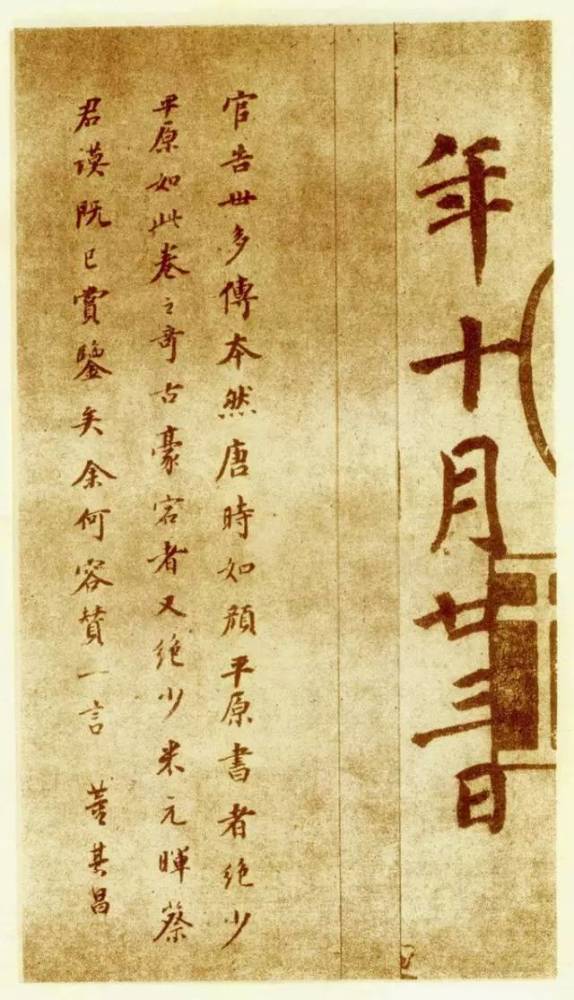 年十月廿三日
官告世多傳本然唐時如顏平原書者絶少
平原如此卷之奇古豪宕者又絶少米元暉蔡
君謨既已賞鑒矣余何容贊一言 董其昌